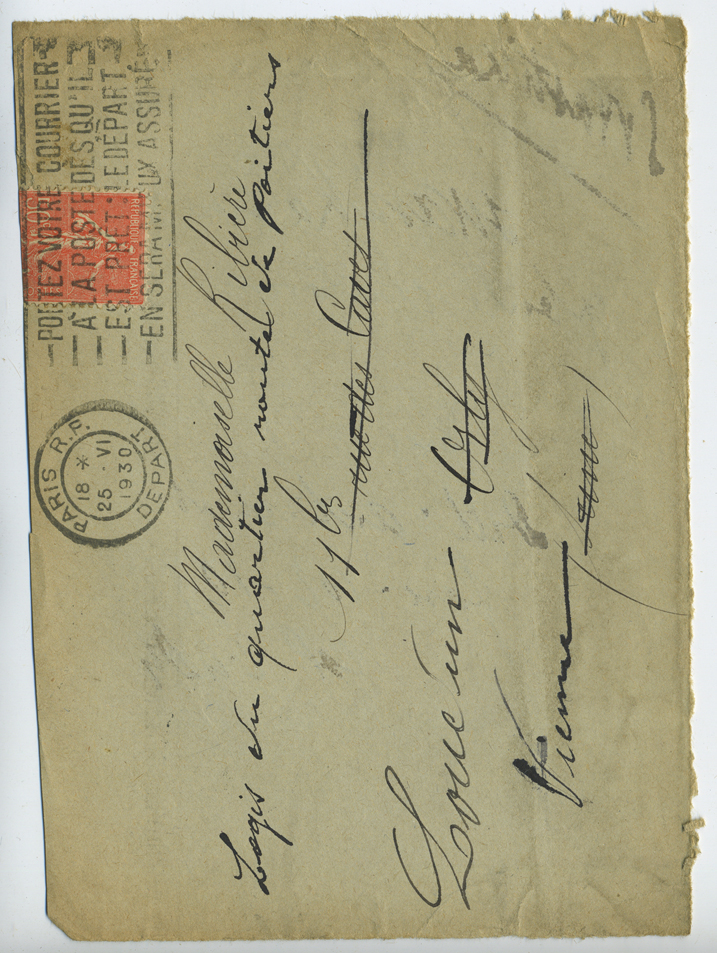 PARIS R.P.
18 *
25 · VI
1930
DEPART
PORTEZ VOTRE COURRIER
A LA POSTE DÈS QU'IL
EST PRÊT. LE DÉPART
EN SERA MIEUX ASSURÉ
REPUBLIQUE FRANÇAISE
Mademoiselle Ribière
Logis du quartier route de Poitiers
17 bis rue des Caves
Loudun Orly
Vienne Seine